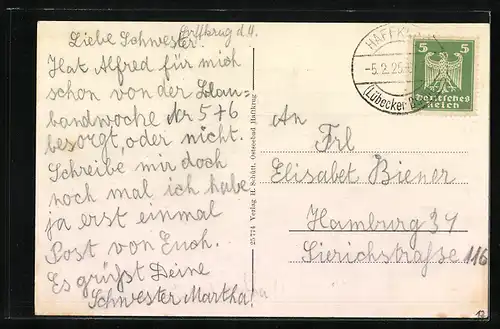 Haffkrug d. 4.
Liebe Schwester!
Hat Alfred für mich
schon von der
bandwoche Nr 5+6
besorgt, oder nicht.
Schreibe mir doch
noch mal ich habe
ja erst einmal
Post von Euch.
Es grüßt Deine
Schwester Martha!
25 774 Verlag H. Schütt, Ostseebad Haffkrug
HAFFKRUG
-5.2.25
(Lübecker
5 5
Deutsches
Reich
An
Frl
Elisabet Biener
Hamburg 34
Sierichstraße 116